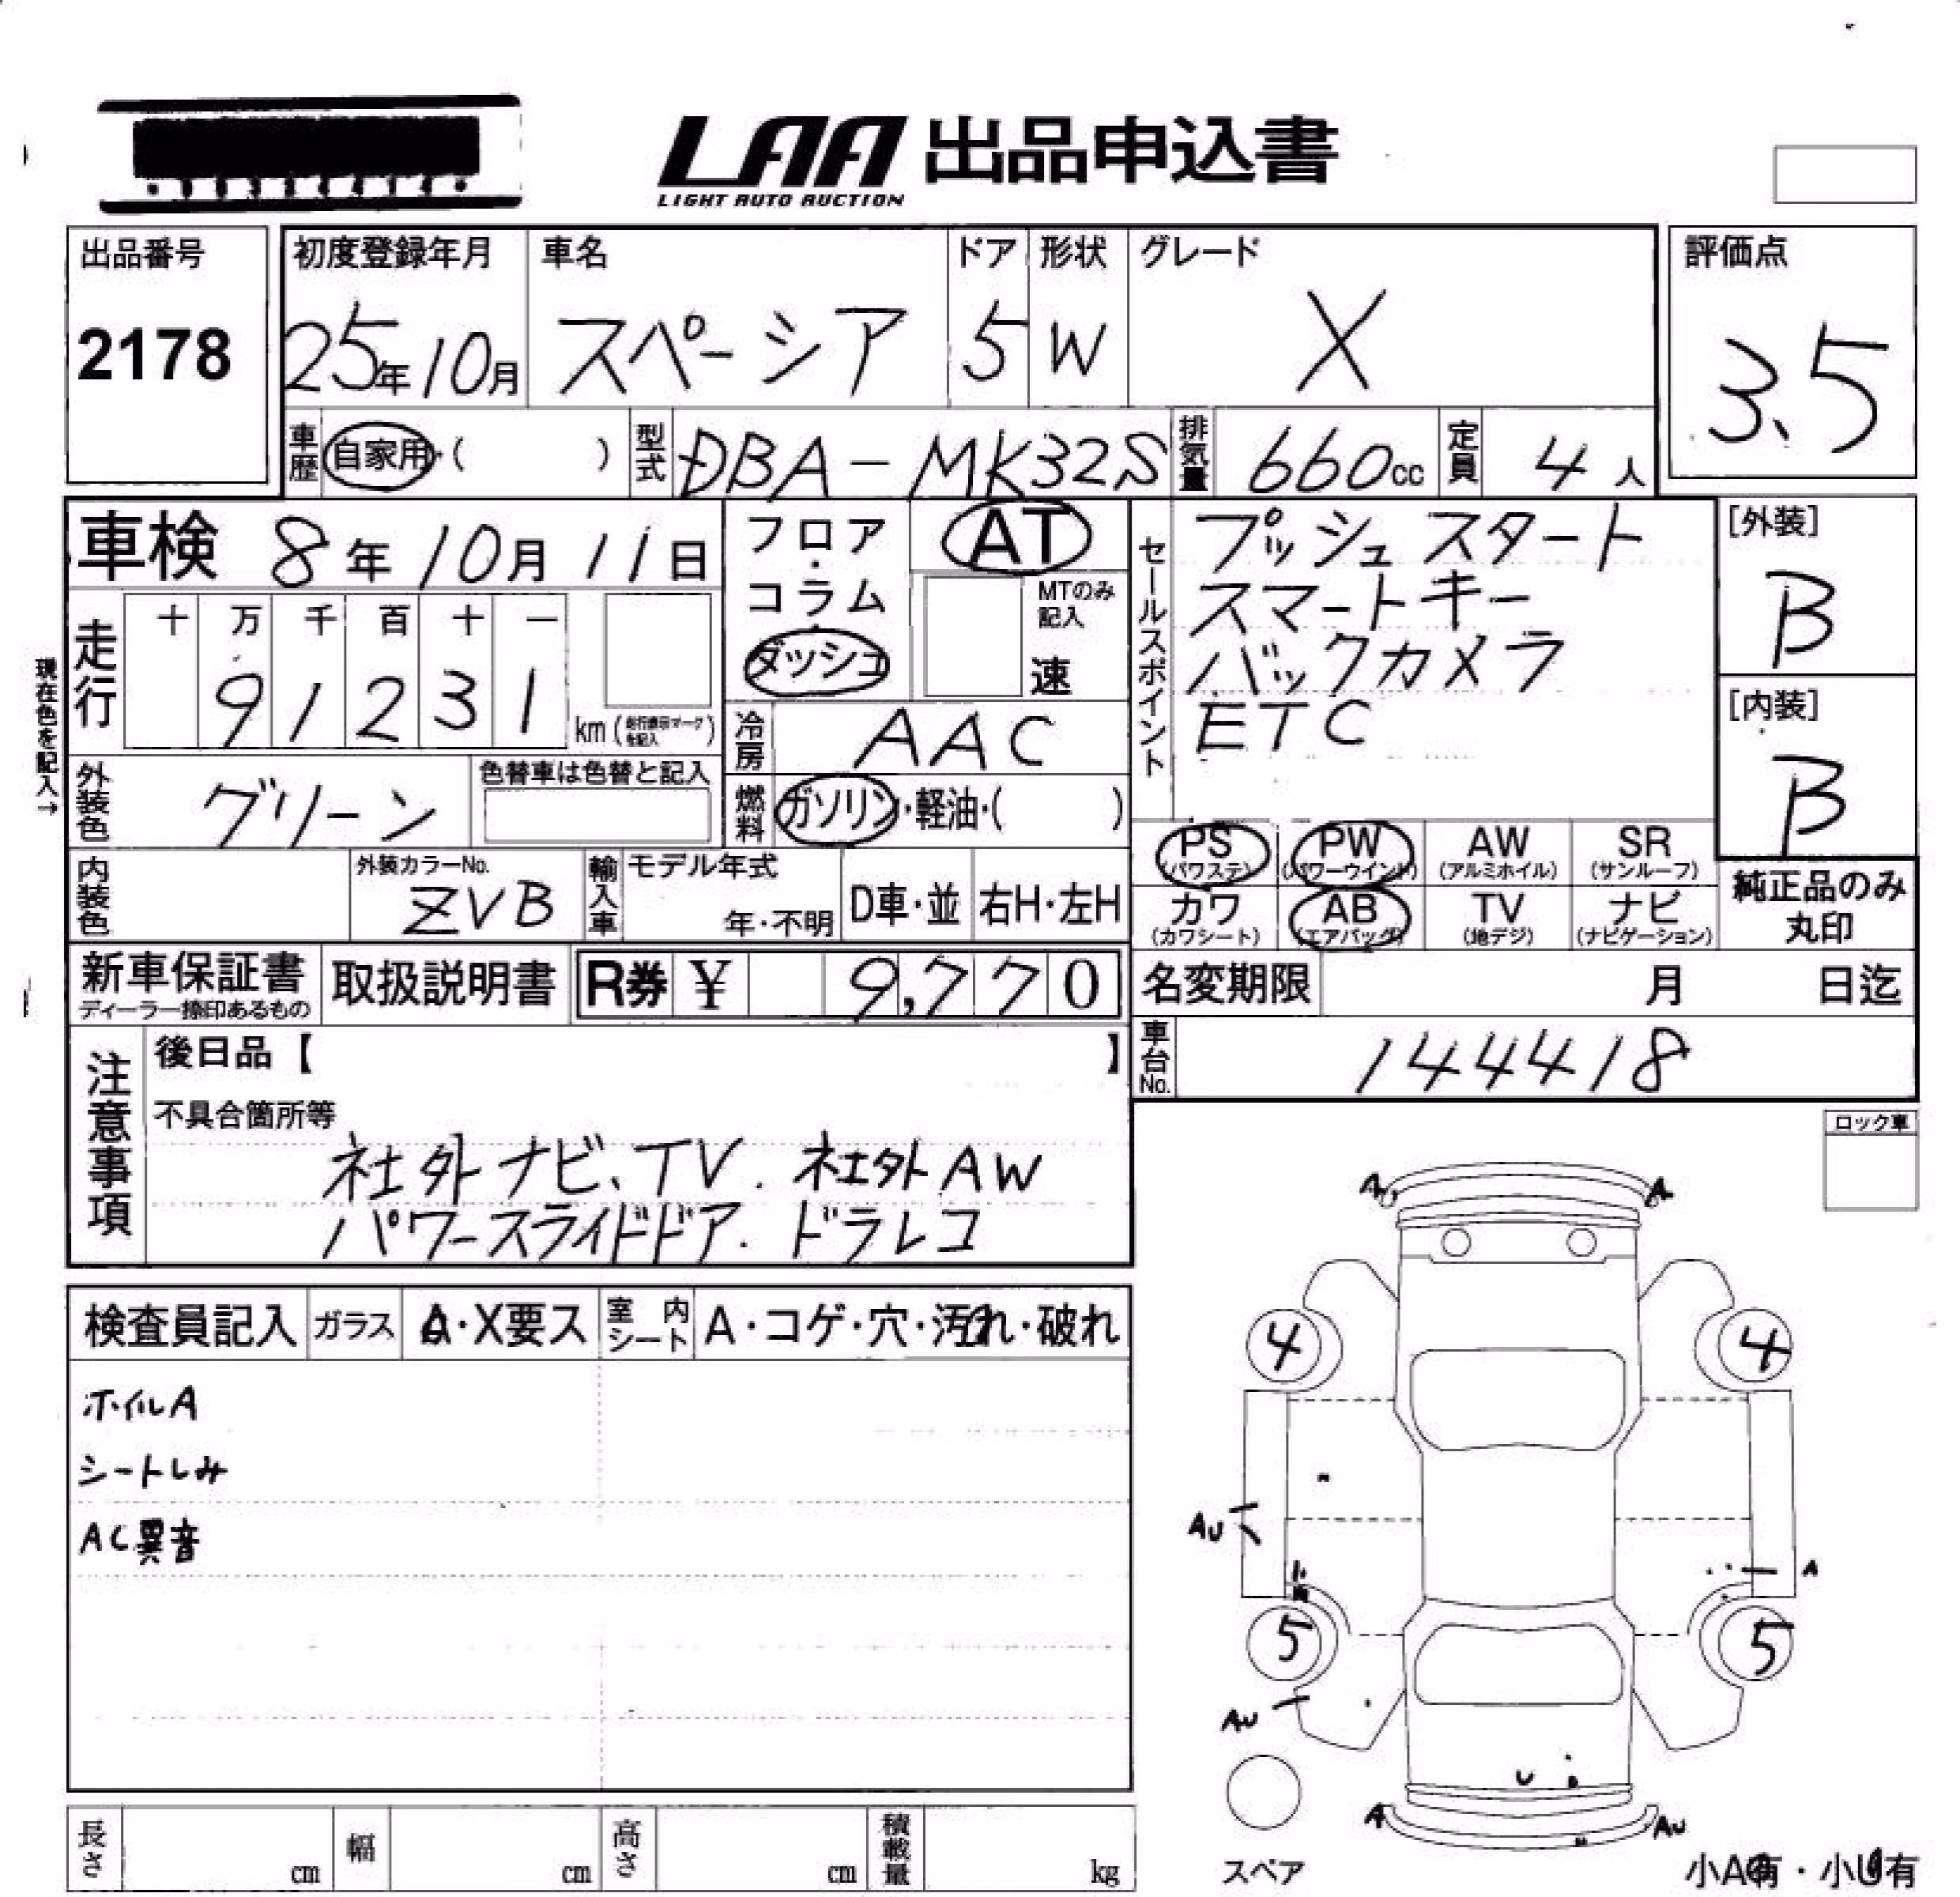 LAA 出品申込書
LIGHT AUTO AUCTION
出品番号
2178
初度登録年月
25年10月
車名
スペーシア
ドア
5
形状
W
グレード
X
評価点
3.5
車歴
自家用・( )
型式
DBA-MK32S
排気量
660cc
定員
4人
車検 8年10月11日
フロア・
コラム・
ダッシュ
AT
MTのみ
記入
速
セールスポイント
プッシュスタート
スマートキー
バックカメラ
ETC
[外装]
B
[内装]
B
現在色を記入→
走行
十 万 千 百 十 一
9 1 2 3 1
km (走行表示マークを記入)
冷房
AAC
外装色
グリーン
色替車は色替と記入
燃料
ガソリン・軽油・( )
PS
(パワステ)
PW
(パワーウインド)
AW
(アルミホイル)
SR
(サンルーフ)
カワ
(カワシート)
AB
(エアバッグ)
TV
(地デジ)
ナビ
(ナビゲーション)
純正品のみ
丸印
内装色
外装カラーNo.
ZVB
輸入車
モデル年式
年・不明
D車・並
右H・左H
新車保証書
ディーラー捺印あるもの
取扱説明書
R券 ¥ 9,770
名変期限 月 日迄
車台No.
144418
注意事項
後日品【 】
不具合箇所等
社外ナビ、TV. 社外AW
パワースライドドア. ドラレコ
ロック車
検査員記入
ガラス
A・X要ス
室内シート
A・コゲ・穴・汚れ・破れ
ホイルA
シートしみ
AC異音
A A
4 4
AU
A
5 5
AU
U
A AU
スペア
小A有・小U有
長さ cm
幅 cm
高さ cm
積載量 kg